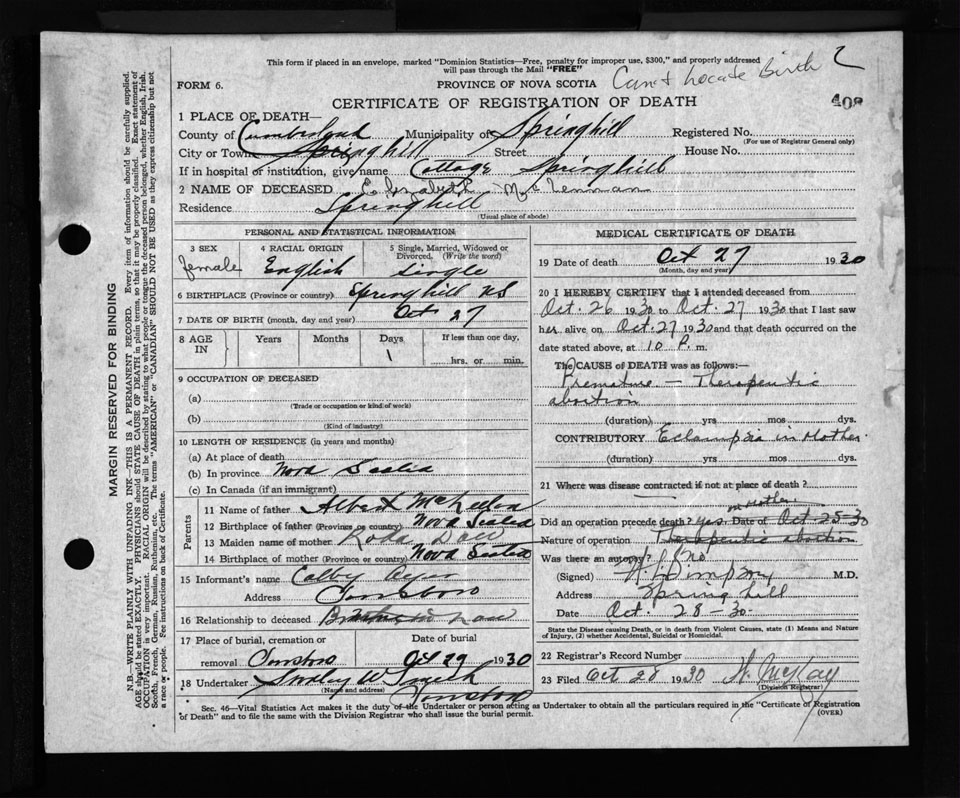 This form if placed in an envelope, marked "Dominion Statistics—Free, penalty for improper use, $300," and properly addressed
will pass through the Mail "FREE"
Can't Locate Birth
FORM 6.
PROVINCE OF NOVA SCOTIA
CERTIFICATE OF REGISTRATION OF DEATH
408
1 PLACE OF DEATH—
County of Cumberland Municipality of Springhill Registered No.
(For use of Registrar General only)
City or Town Springhill Street House No.
If in hospital or institution, give name Cottage Springhill
2 NAME OF DECEASED Elizabeth McLennan
Residence Springhill
(Usual place of abode)
PERSONAL AND STATISTICAL INFORMATION
3 SEX 4 RACIAL ORIGIN 5 Single, Married, Widowed or Divorced. (Write the word)
female English single
6 BIRTHPLACE (Province or country) Springhill NS
7 DATE OF BIRTH (month, day and year) Oct 27
8 AGE IN Years Months Days If less than one day.
1 hrs. or min.
9 OCCUPATION OF DECEASED
(a)
(Trade or occupation or kind of work)
(b)
(Kind of industry)
10 LENGTH OF RESIDENCE (in years and months)
(a) At place of death
(b) In province Nova Scotia
(c) In Canada (if an immigrant)
Parents
11 Name of father Albert
12 Birthplace of father (Province or country) Nova Scotia
13 Maiden name of mother
14 Birthplace of mother (Province or country) Nova Scotia
15 Informant's name
Address
16 Relationship to deceased
17 Place of burial, cremation or Date of burial
removal Oct 29 1930
18 Undertaker W Smith
(Name and address)
MEDICAL CERTIFICATE OF DEATH
19 Date of death Oct 27 1930
(Month, day and year)
20 I HEREBY CERTIFY that I attended deceased from
Oct. 26 1930 to Oct. 27 1930 that I last saw
her alive on Oct. 27 1930 and that death occurred on the
date stated above, at 10 P. m.
The CAUSE OF DEATH was as follows:—
Premature — Therapeutic
abortion
(duration) yrs mos dys.
CONTRIBUTORY Eclampsia in Mother
(duration) yrs. mos dys.
21 Where was disease contracted if not at place of death?
—
in Mother
Did an operation precede death? Yes. Date of Oct-25-30
Nature of operation Therapeutic abortion
Was there an autopsy? No
(Signed) M.D.
Address Springhill
Date Oct. 28-30.
State the Disease causing Death, or in death from Violent Causes, state (1) Means and Nature of Injury, (2) whether Accidental, Suicidal or Homicidal.
22 Registrar's Record Number
23 Filed Oct 28 1930
(Division Registrar)
Sec. 46—Vital Statistics Act makes it the duty of the Undertaker or person acting as Undertaker to obtain all the particulars required in the "Certificate of Registration
of Death" and to file the same with the Division Registrar who shall issue the burial permit.
(OVER)
MARGIN RESERVED FOR BINDING
N.B.—WRITE PLAINLY WITH UNFADING INK—THIS IS A PERMANENT RECORD. Every item of information should be carefully supplied.
AGE should be stated EXACTLY. PHYSICIANS should STATE CAUSE OF DEATH in plain terms, so that it may be properly classified. Exact statement of
OCCUPATION is very important. RACIAL ORIGIN will be described by stating to what people or tongue the deceased person belonged, whether English, Irish,
Scotch, French, German, Russian, Ruthenian, etc. The terms "AMERICAN" or "CANADIAN" SHOULD NOT BE USED as they express citizenship but not
a race or people. See instructions on back of Certificate.